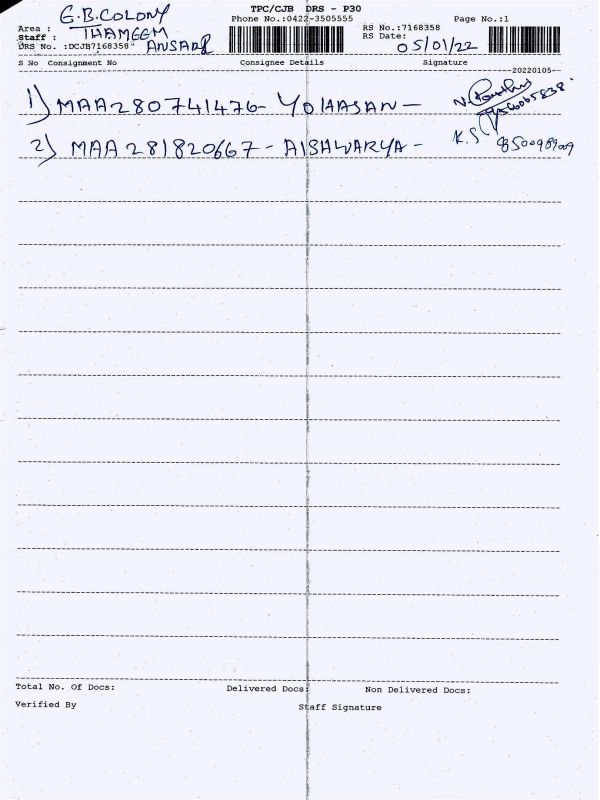 TPC/CJB DRS - P30
Area : G.B.COLONY Phone No.:0422-3505555 Page No.:1
Staff : THAMEEM ANSARI RS No.:7168358
DRS No. :DCJB7168358 RS Date: 05/01/22
S No Consignment No Consignee Details Signature
20220105
1) MAA280741476- YOHASAN -
2) MAA 281820667 - AISHWARYA - K.S
Total No. Of Docs: Delivered Docs: Non Delivered Docs:
Verified By Staff Signature